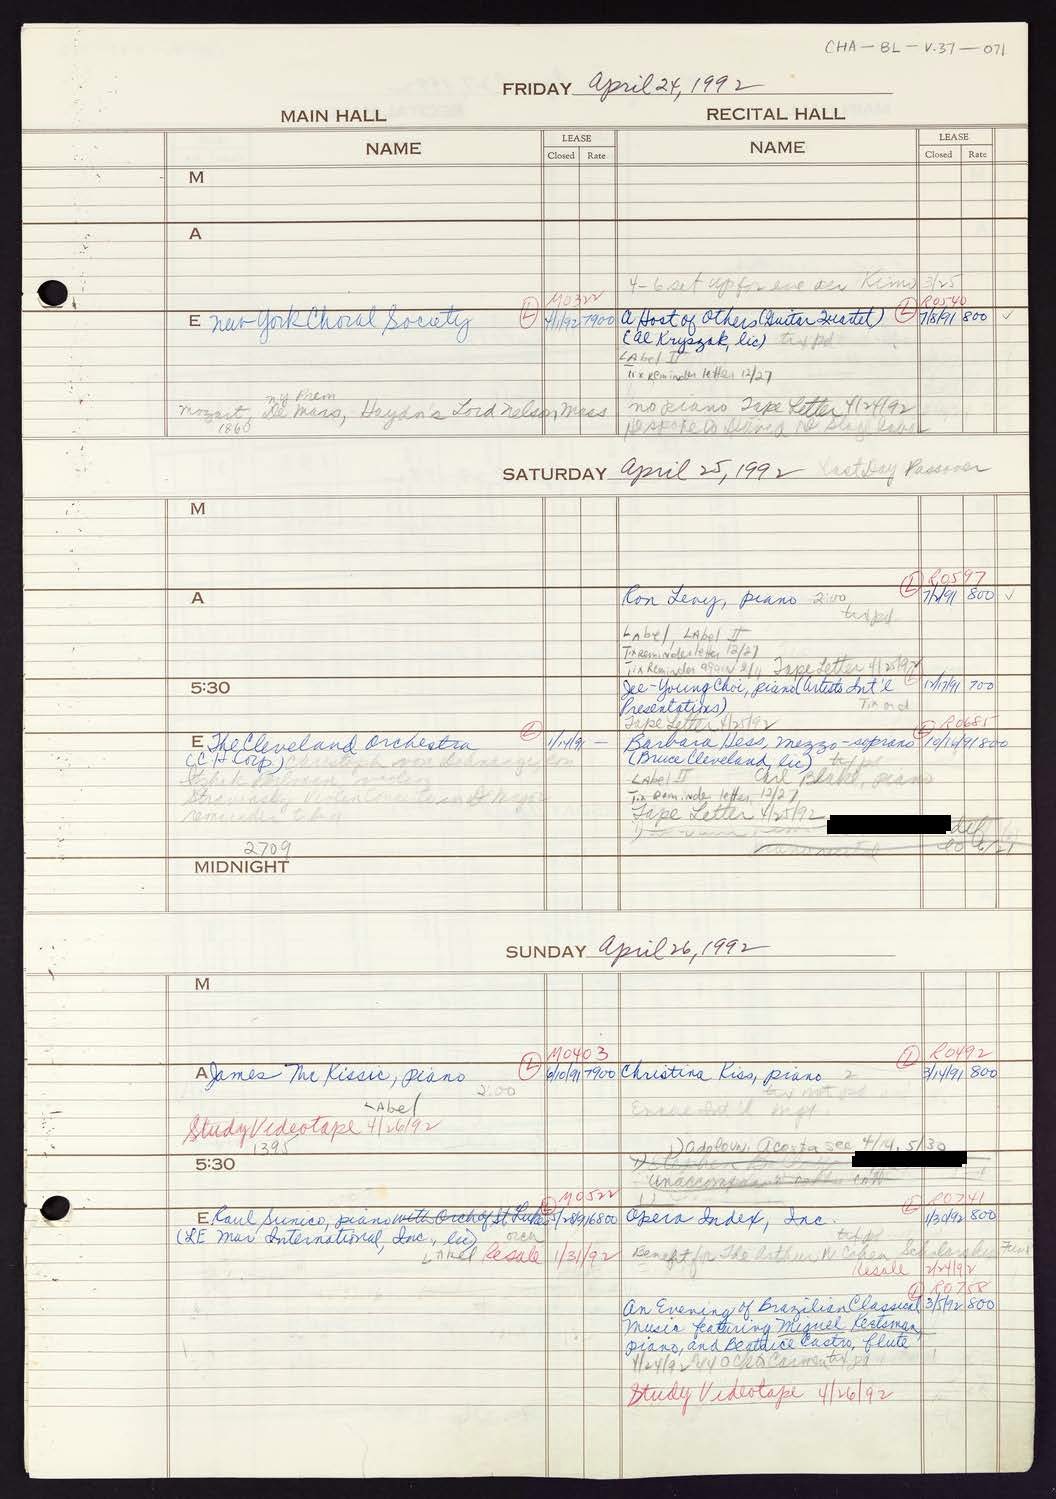 CHA-BL-V.37-071
FRIDAY April 24, 1992
MAIN HALL
RECITAL HALL
NAME
LEASE
Closed Rate
NAME
LEASE
Closed Rate
M
A
4-6 set up for eve per Kimo 3/25
M0322
R0540
E New York Choral Society L 7900
A Host of Others (Guitar Quartet) L 7/8/91 800 ✓
(Al Kryszak, lic) tix pd
Label II
Tix Reminder letter 12/27
NY Prem
Mozart, De Mass, Haydn's Lord Nelson Mass
1860
no piano Tape Letter 4/24/92
SATURDAY April 25, 1992 Last Day Passover
M
R0597
A
Ron Levy, piano 2:00 L 800 ✓
tix pd
Label, Label II
Tix Reminder letter 12/27
Tix Reminder again 2/11 Tape Letter 4/25/92
5:30
Jee-Young Choi, piano (Artists Int'l L 12/17/91 700
Presentations)
Tape Letter 4/25/92
R0685
E The Cleveland Orchestra L 1/14/91 —
(CH Corp) Christoph von Dohnanyi, con
Itzhak Perlman, violin
Stravinsky Violin Concerto in D Major
2709
Barbara Hess, mezzo-soprano L 10/16/91 800
(Bruce Cleveland, lic) tix pd
Label II Carl Blake, piano
Tix Reminder letter 12/27
Tape Letter 4/25/92
MIDNIGHT
SUNDAY April 26, 1992
M
M0403
R0492
A James McKissic, piano L 6/10/91 7900
2:00
Label
Study Videotape 4/26/92
1395
Christina Kiss, piano 2 L 3/14/91 800
tix not pd
1) Adolovn. Acosta see 4/14, 5/30
5:30
M0522
R0741
E Raul Sunico, piano with Orch of St Luke L 6800
(LE Mar International, Inc., lic) orch
Label Resale 1/31/92
Opera Index, Inc. L 1/30/92 800
tix pd
Benefit for The Arthur N Cohen Scholarship Fund
Resale 2/24/92
R0758
An Evening of Brazilian Classical L 3/5/92 800
Music featuring Miguel Kertsman,
piano, and Beatrice Castro, flute
Study Videotape 4/26/92